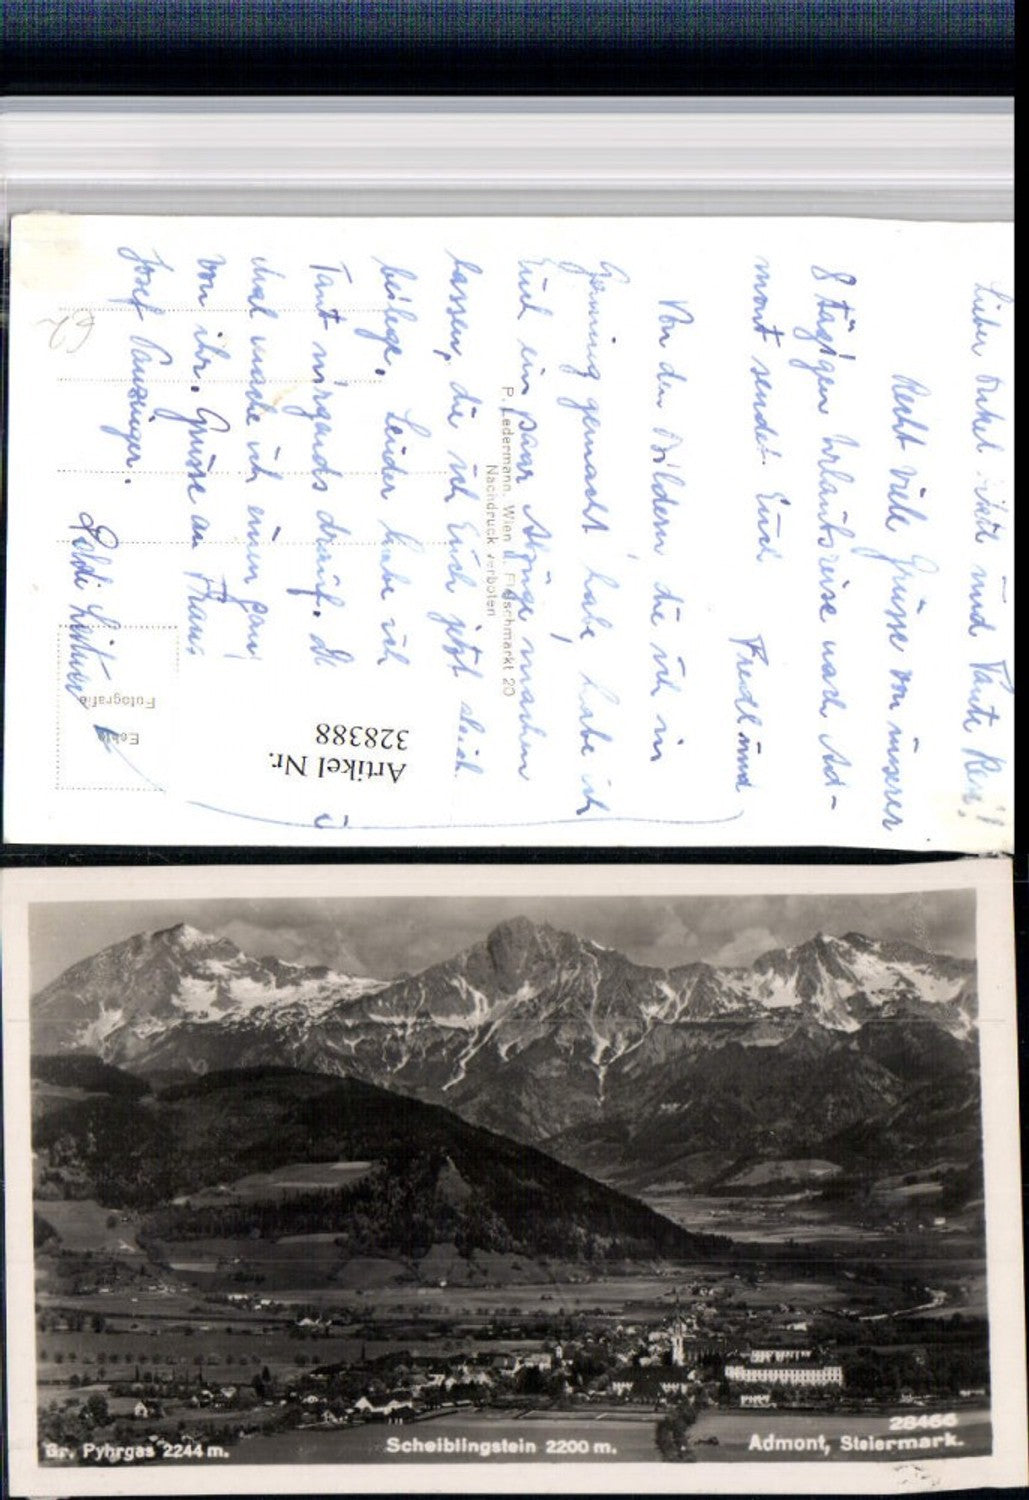 Lieber Onkel und Tante Resi!
Recht viele Grüsse von unserer
8 tägigen Urlaubsreise nach Ad-
mont sendet Euch
Friedl und
Von den Bildern die ich in
gemacht habe, habe ich
Euch ein paar Abzüge machen
lassen, die ich Euch jetzt gleich
beilege. Leider habe ich
Tant nirgends drauf. Da
mal mache ich einen ganz
von ihr. Grüsse an Haus
Josef
Poldi
P. Ledermann, Wien I., Fleischmarkt 20
Nachdruck verboten
Echte
Fotografie
Artikel Nr.
328388
28466
Gr. Pyhrgas 2244 m.
Scheiblingstein 2200 m.
Admont, Steiermark.